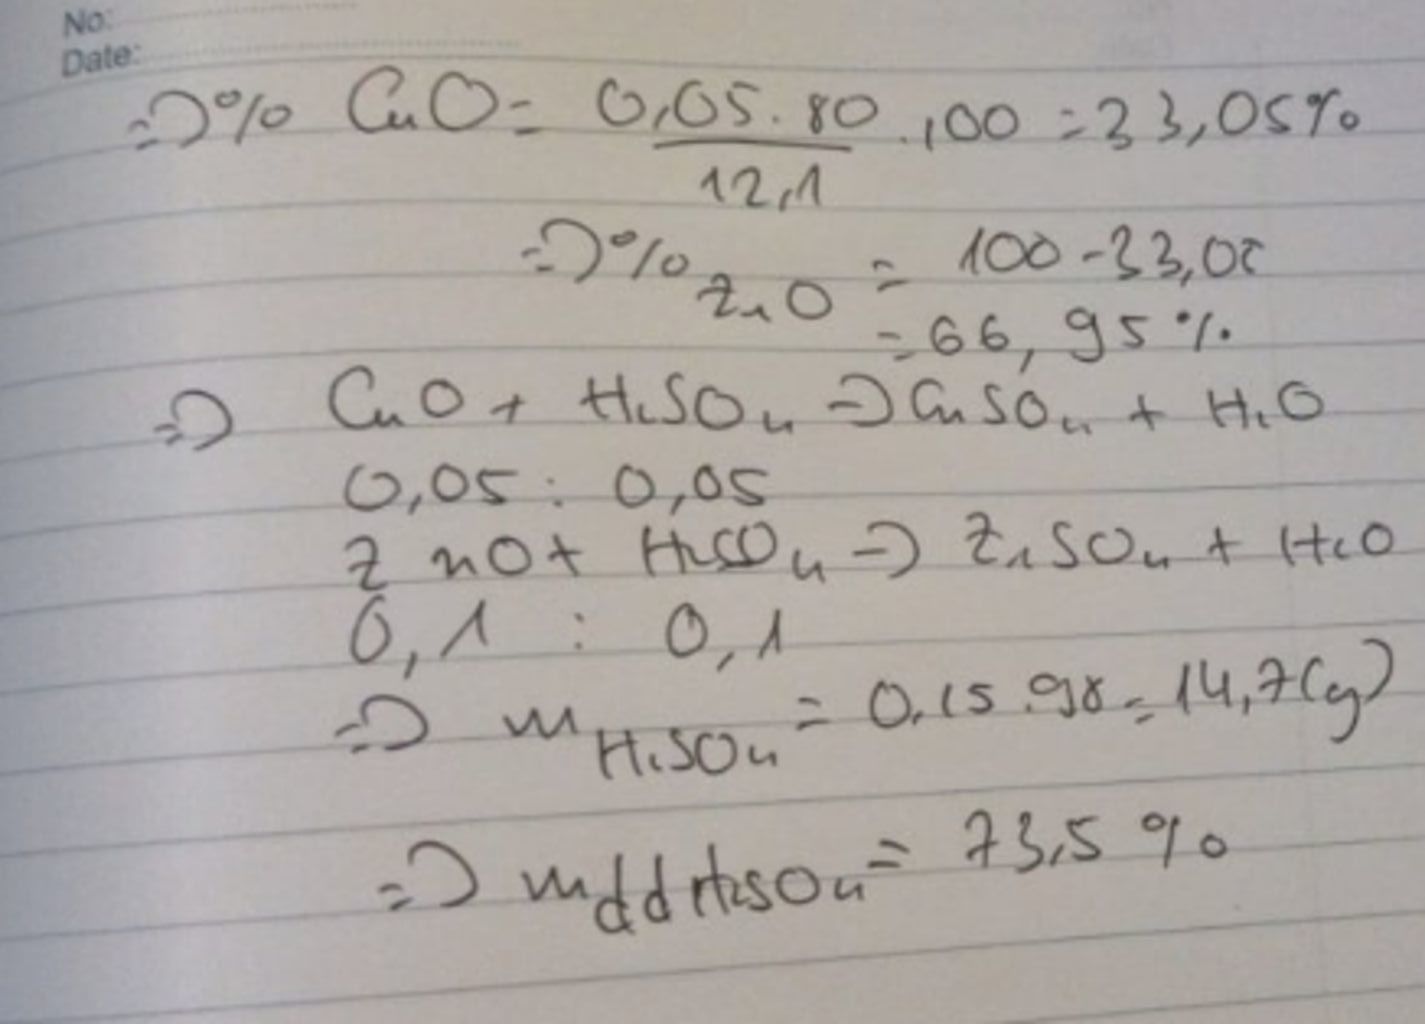 No:
Date:
=> % CuO = 0,05.80 / 12,1 .100 = 33,05%
=> % ZnO = 100 - 33,05
= 66,95%
=> CuO + H₂SO₄ => CuSO₄ + H₂O
0,05 : 0,05
ZnO + H₂SO₄ => ZnSO₄ + H₂O
0,1 : 0,1
=> m H₂SO₄ = 0,15.98 = 14,7(g)
=> mdd H₂SO₄ = 73,5%